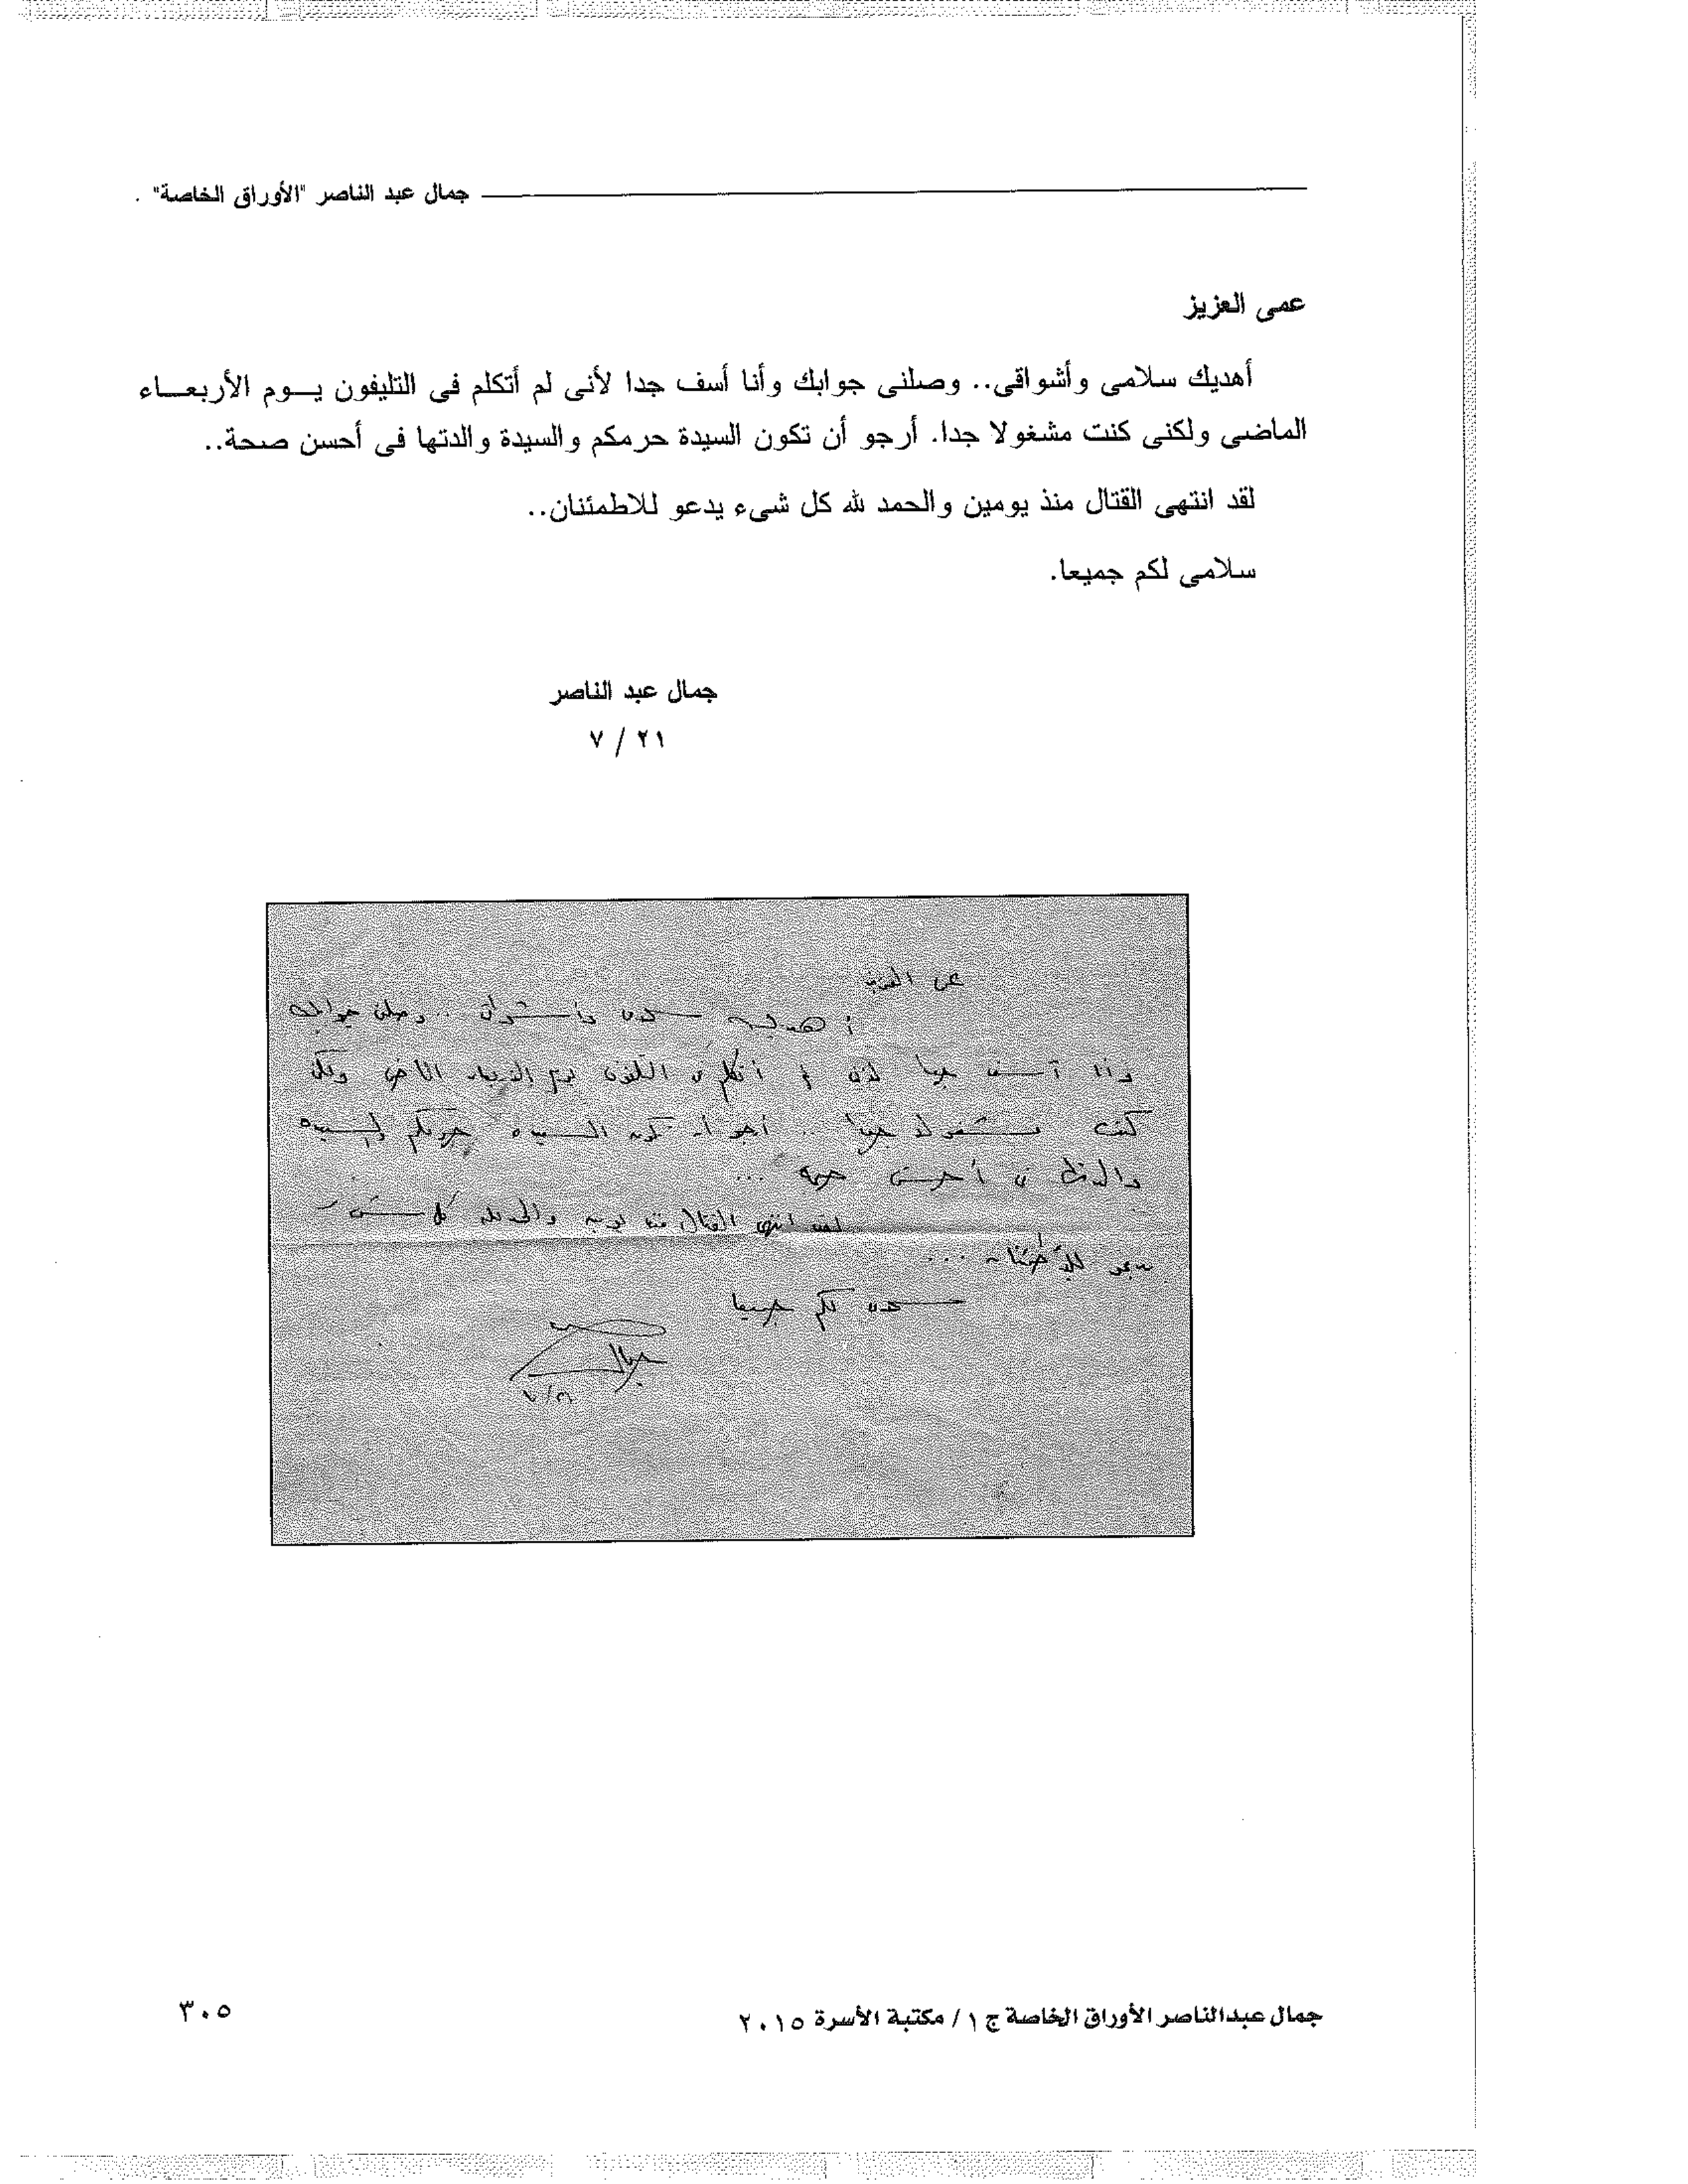 جمال عبد الناصر "الأوراق الخاصة"
عمى العزيز
أهديك سلامى وأشواقى.. وصلنى جوابك وأنا أسف جدا لأنى لم أتكلم فى التليفون يــوم الأربعــاء
الماضى ولكنى كنت مشغولا جدا. أرجو أن تكون السيدة حرمكم والسيدة والدتها فى أحسن صحة..
لقد انتهى القتال منذ يومين والحمد لله كل شىء يدعو للاطمئنان..
سلامى لكم جميعا.
جمال عبد الناصر
٢١ / ٧
عمى العزيز
أهديك سلامى وأشواقى .. وصلنى جوابك
وأنا آسف جدا لأنى لم أتكلم فى التلفون يوم الأربعاء الماضى ولكنى
كنت مشغولا جدا .. أرجو أن تكون السيده حرمكم والسيده
والدتها فى أحسن صحه ...
لقد انتهى القتال منذ يومين والحمد لله كل شىء
يدعو للأطمئنان ...
سلامى لكم جميعا
جمال
٢١/٧
جمال عبدالناصر الأوراق الخاصة ج ١ / مكتبة الأسرة ٢٠١٥
٣٠٥